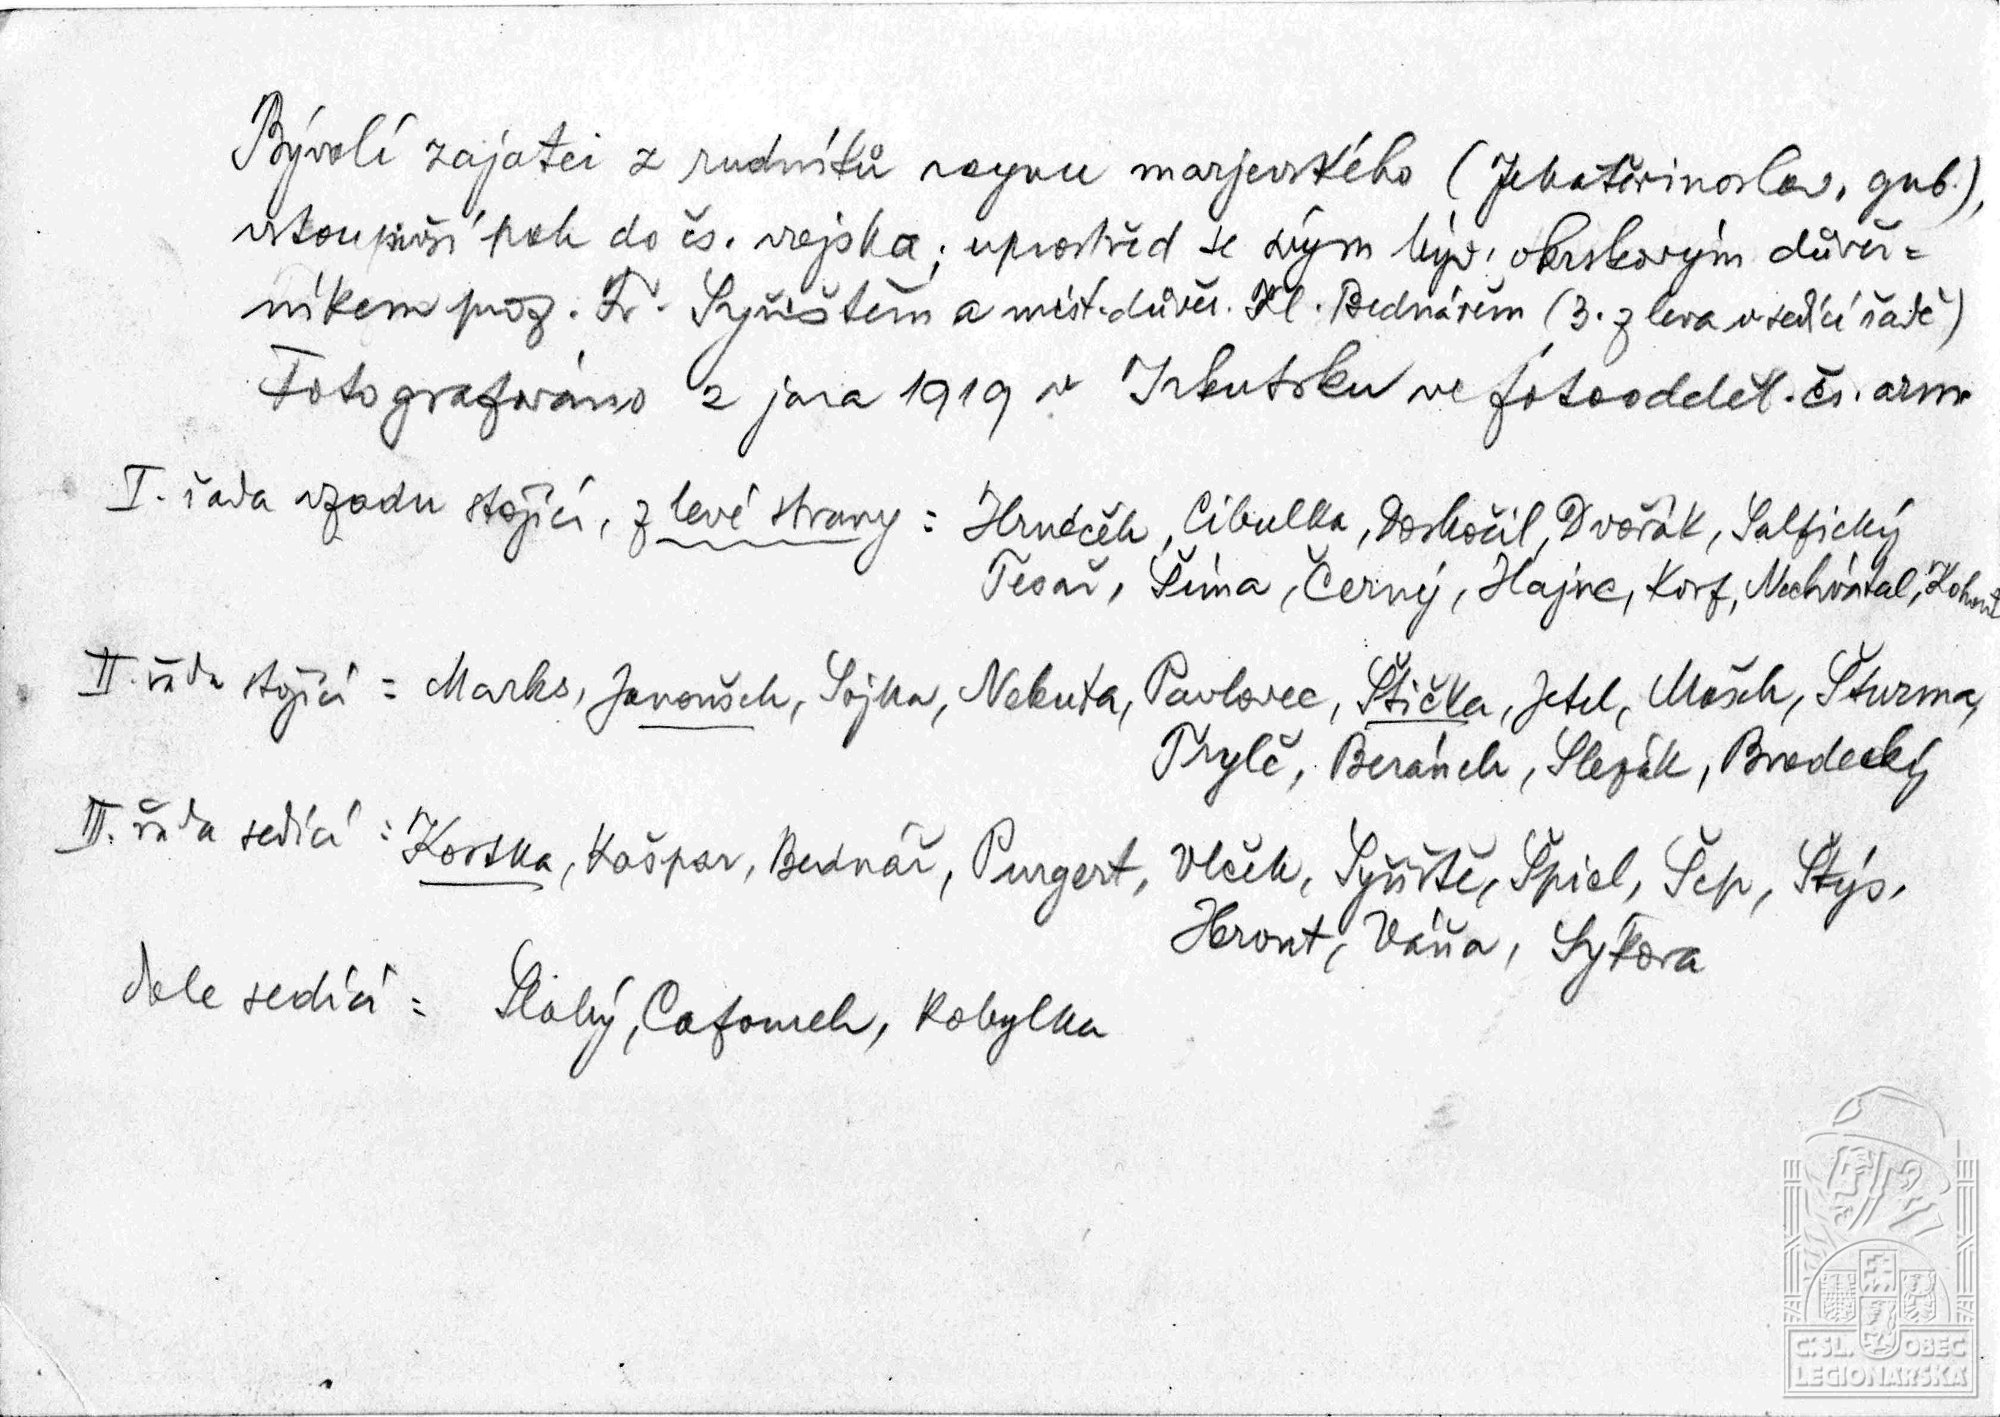 Bývalí zajatci z rudníků rayonu marjevského (Jekatěrinoslav. gub.),
vstoupivší pak do čs. vojska; uprostřed se svým býv. okrskovým důvěr=
níkem prof. Fr. Syřištěm a míst. důvěr. Kl. Bednářem (3. z leva v sedící řadě)
Fotografováno z jara 1919 v Irkutsku ve fotoodděl. čs. arm.
I. řada vzadu stojící, z levé strany = Hrneček, Cibulka, Doskočil, Dvořák, Salfický
Tesař, Šíma, Černý, Hajne, Korf, Nechvátal, Kohout
II. řada stojící = Marks, Janoušek, Sojka, Nekuta, Pavlovec, Štička, Jetel, Mašek, Šturma,
Trylč, Beránek, Slezák, Brodecký
III. řada sedící = Kostka, Kašpar, Bednář, Purgert, Vlček, Syřiště, Špiel, Šep, Štýs,
Hront, Váňa, Sýkora
dole sedící = Slabý, Cafourek, Kobylka
Č.SL. OBEC
LEGIONÁŘSKÁ